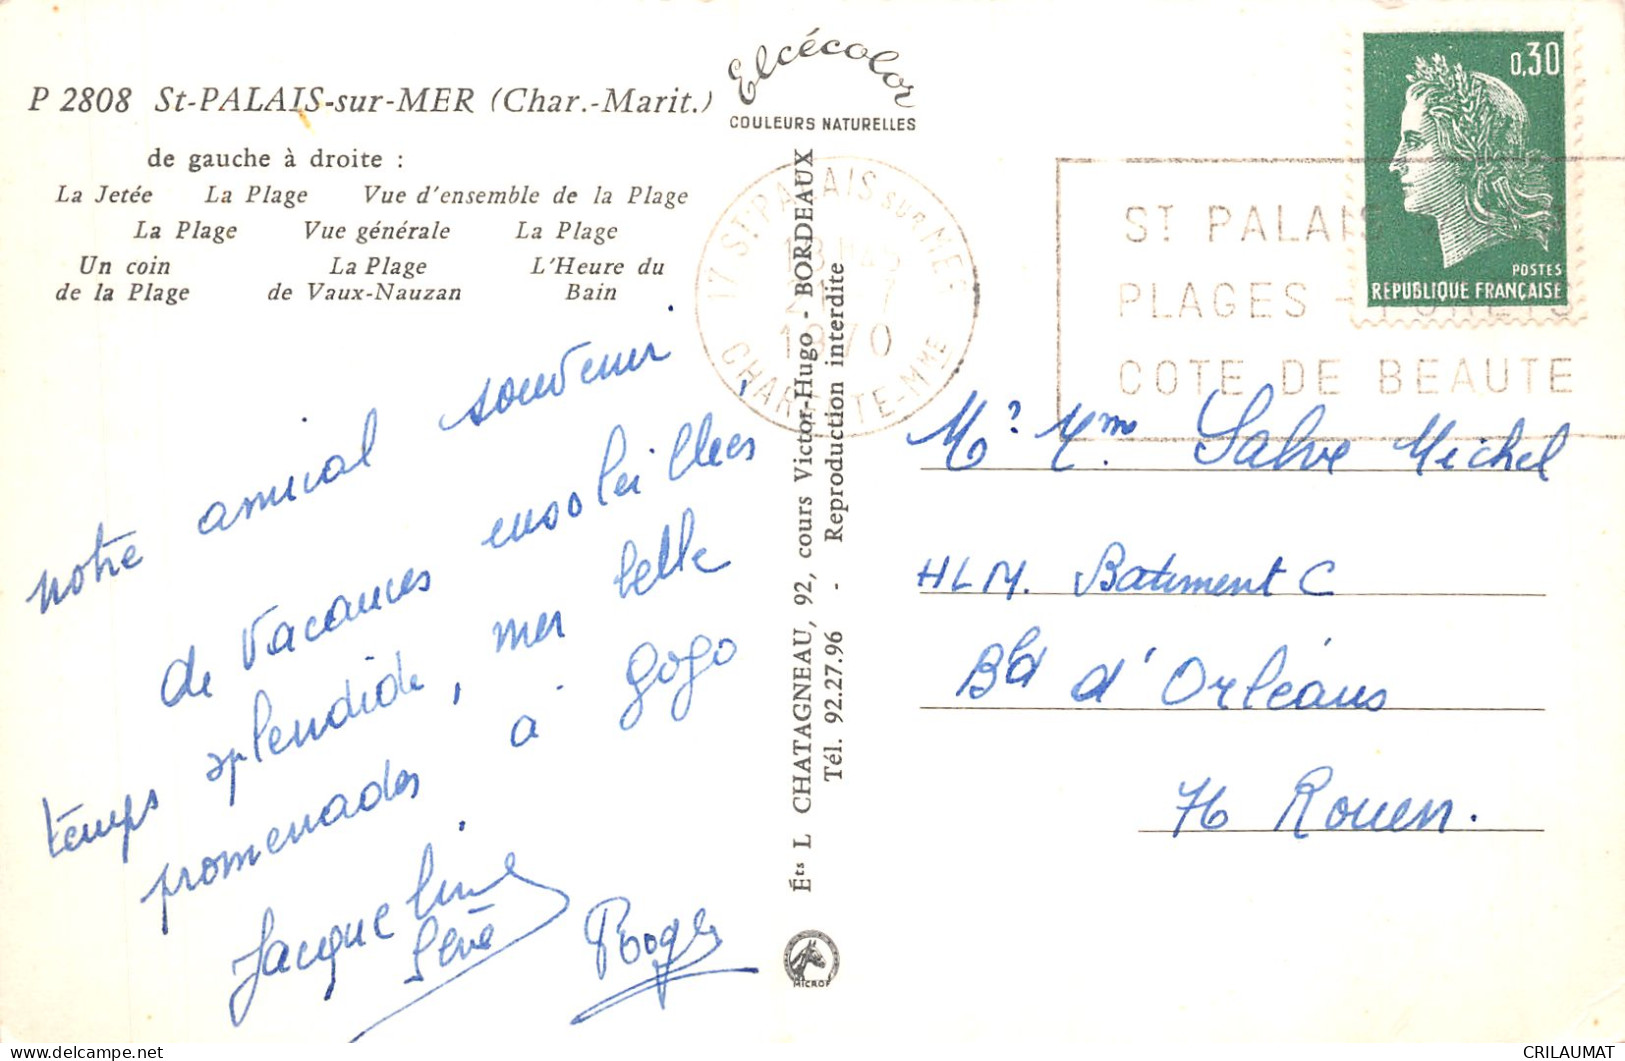 P 2808 St-PALAIS-sur-MER (Char.-Marit.)
de gauche à droite :
La Jetée La Plage Vue d'ensemble de la Plage
La Plage Vue générale La Plage
Un coin de la Plage
La Plage de Vaux-Nauzan
L'Heure du Bain
Elcécolor
COULEURS NATURELLES
17 ST PALAIS SUR MER
1970
CHARENTE-MME
ST PALAIS
PLAGES - FORETS
COTE DE BEAUTE
0,30
POSTES
REPUBLIQUE FRANÇAISE
notre amical souvenir
de vacances ensoleillées,
temps splendide, mer belle
promenades à gogo.
Jacqueline
Roger
Éts L CHATAGNEAU, 92, cours Victor-Hugo - BORDEAUX
Tél. 92.27.96 - Reproduction interdite
MICROF
Mr Mme Salve Michel
HLM. Batiment C
Bld d'Orléans
76 Rouen.
CRILAUMAT